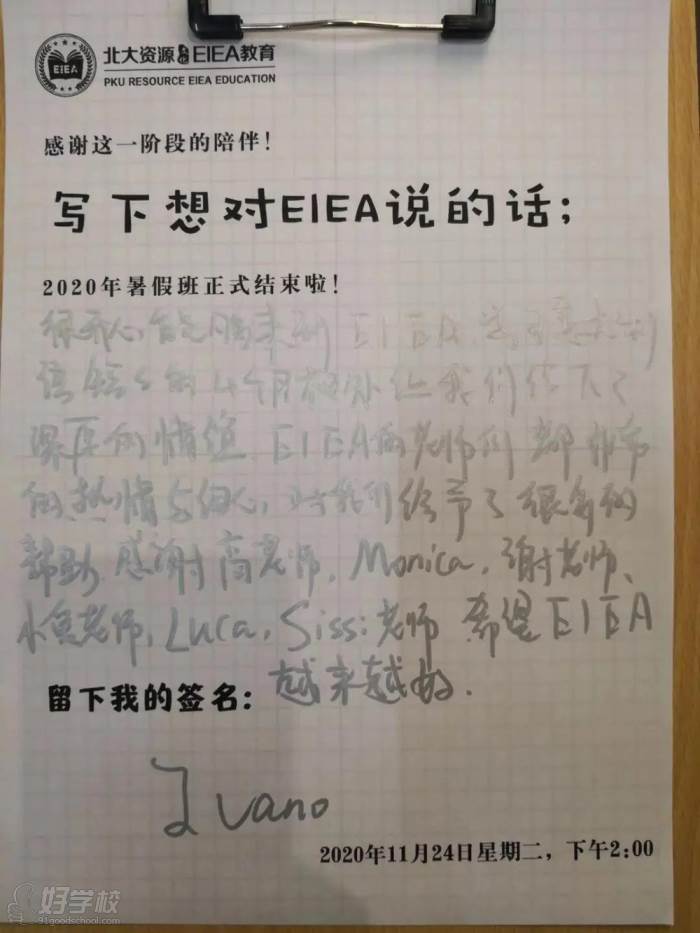 EIEA
北大资源 EIEA教育
PKU RESOURCE EIEA EDUCATION
感谢这一阶段的陪伴!
写下想对EIEA说的话;
2020年暑假班正式结束啦!
很开心能够来到 EIEA
的4个月 给我们留下了
深厚的情谊 EIEA的老师们都非常
的热情与细心,对我们给予了很多的
帮助 感谢高老师, Monica, 谢老师、
老师, Luca, Sissi老师 希望EIEA
越来越好.
留下我的签名:
Ivano
2020年11月24日星期二, 下午2:00
好学校
91goodschool.com